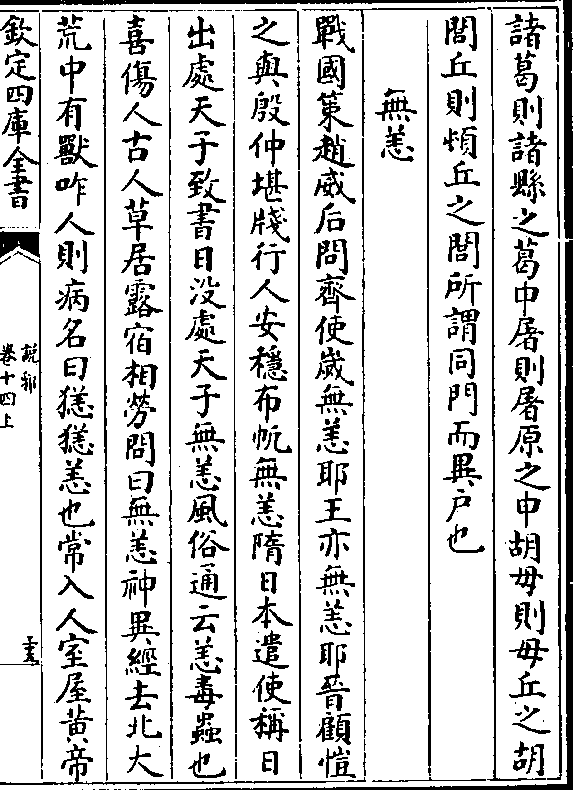 諸葛則諸縣之葛中屠則屠原之申胡毋則毋丘之胡
閭丘則頓丘之閭所謂同門而異户也
無恙
戰國策趙威后問齊使嵗無恙耶王亦無恙耶晉顧愷
之與殷仲堪牋行人安穩布帆無恙隋日本遣使稱日
出處天子致書日没處天子無恙風俗通云恙毒蟲也
喜傷人古人草居露宿相勞問曰無恙神異經去北大
荒中有獸咋人則病名曰㺊㺊恙也常入人室屋黄帝
欽定四庫全書
說郛
卷十四上